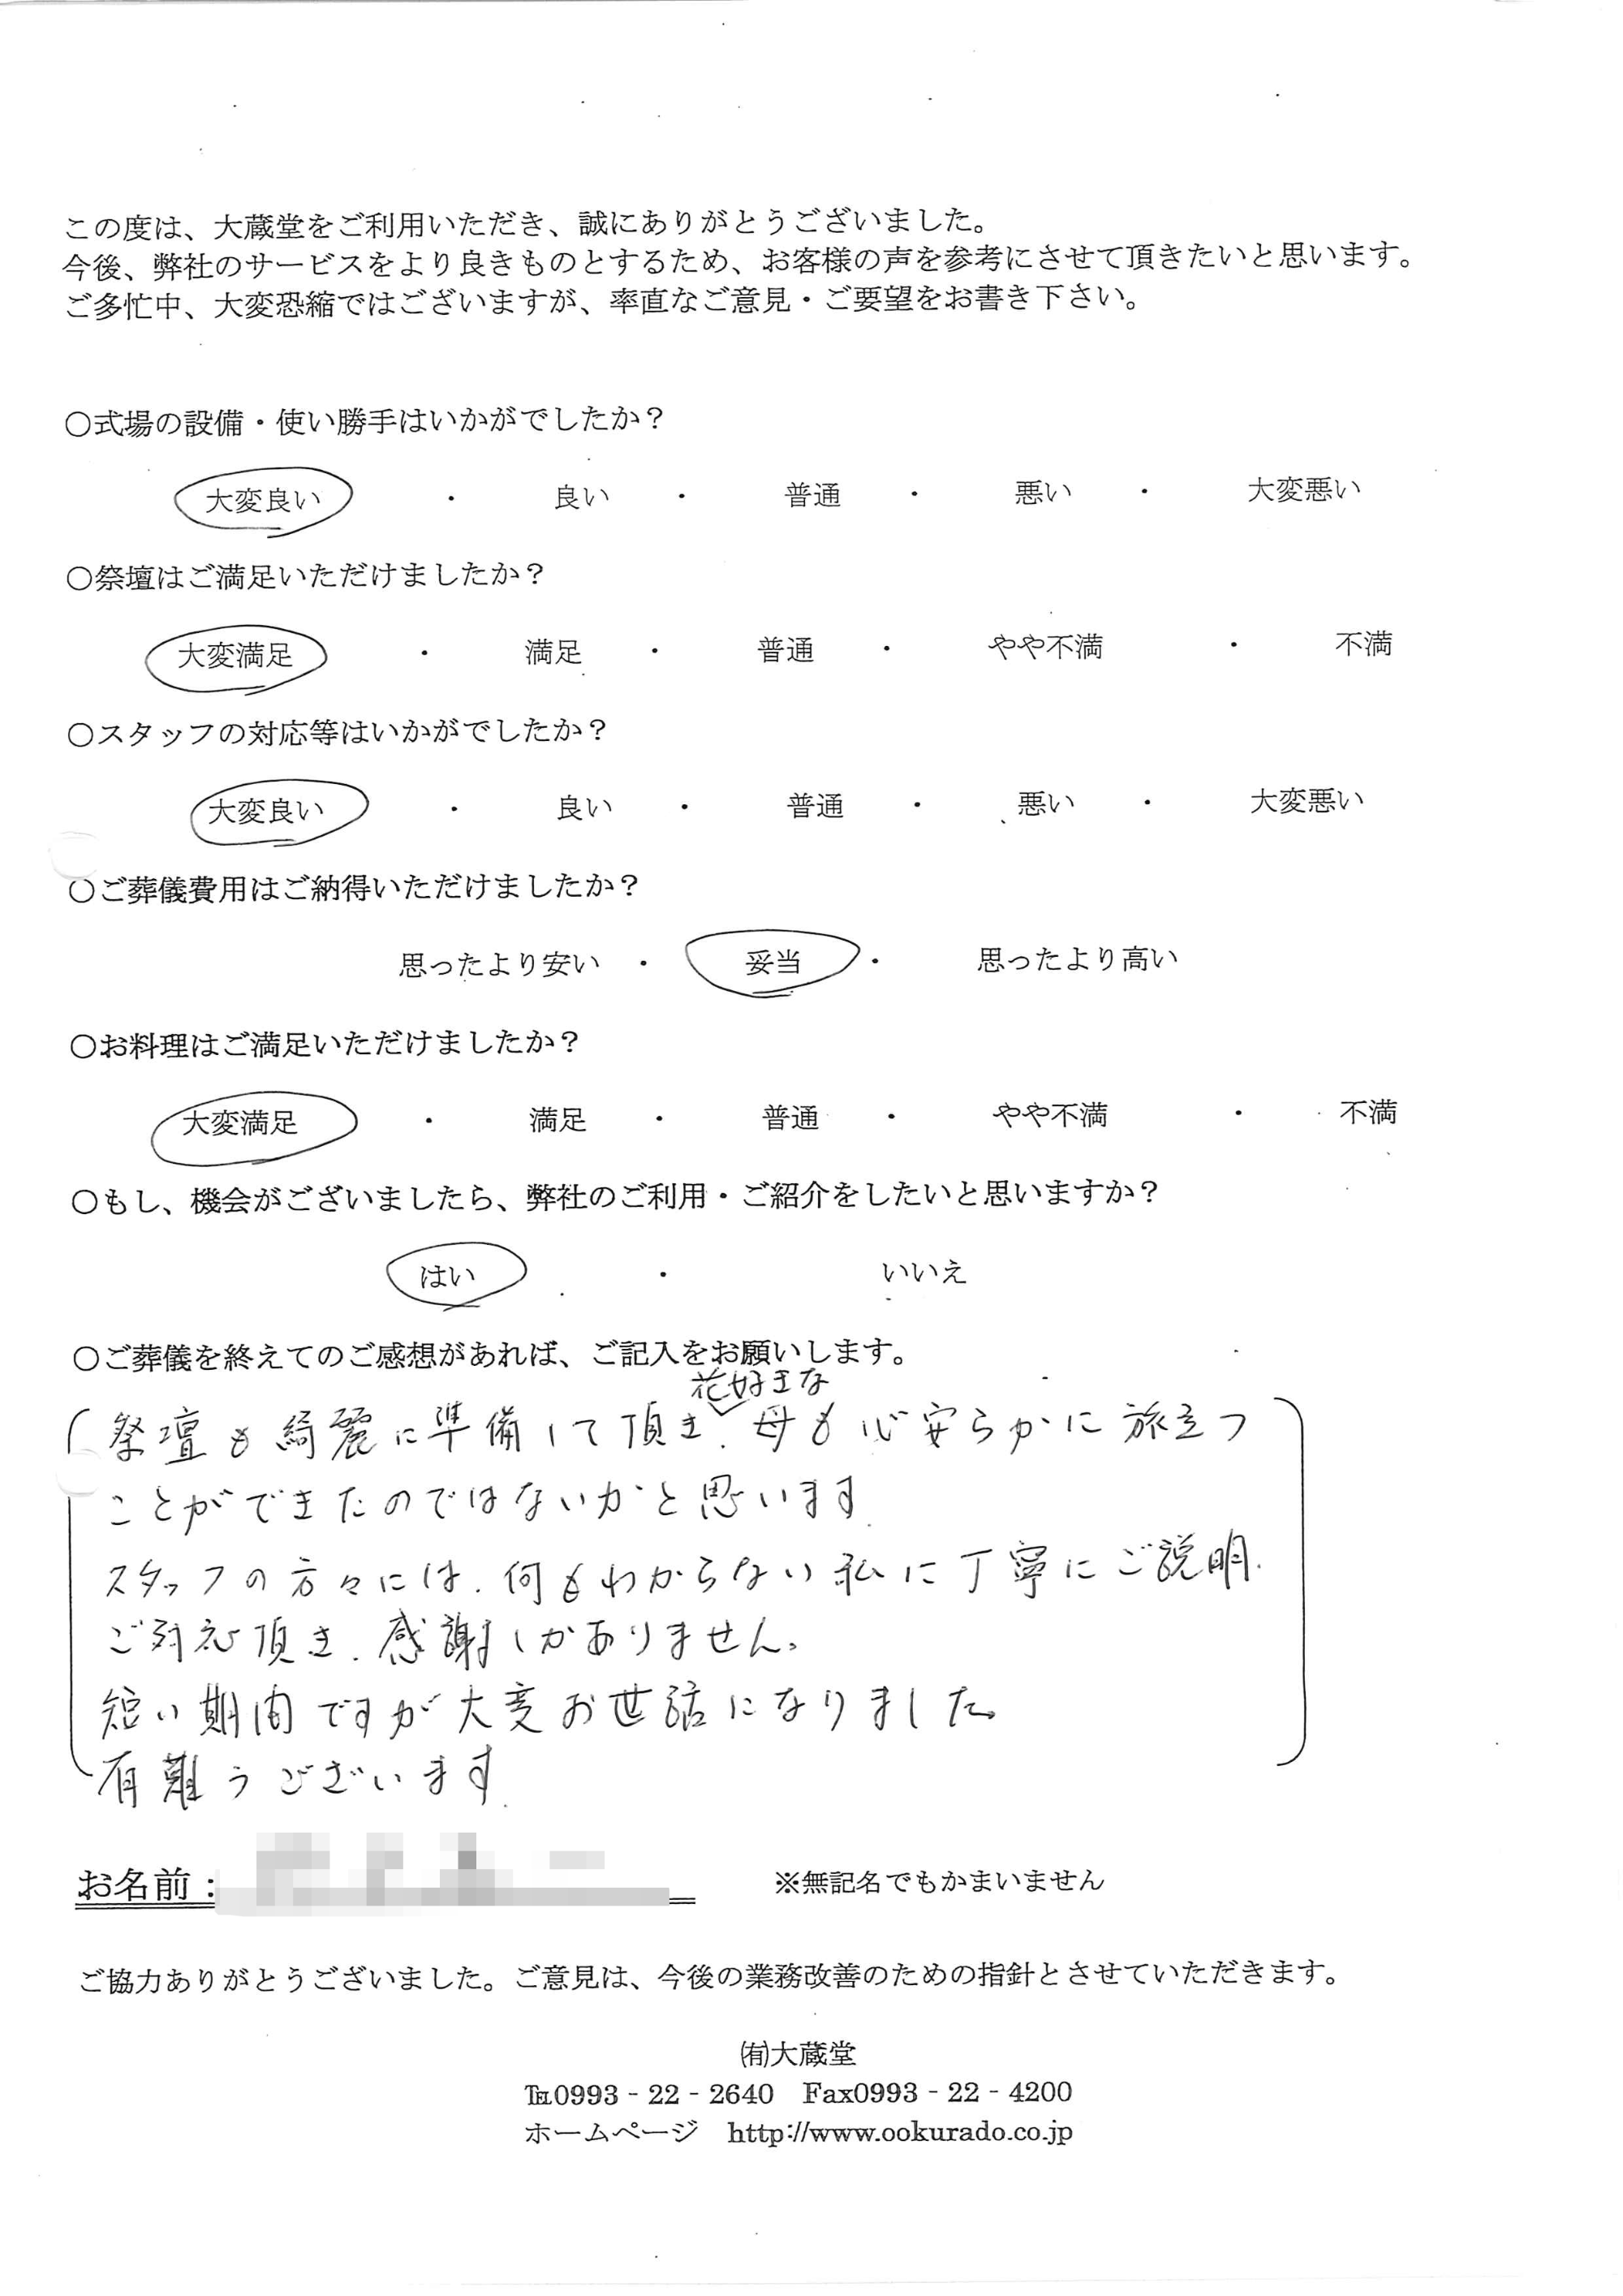 この度は、大蔵堂をご利用いただき、誠にありがとうございました。
今後、弊社のサービスをより良きものとするため、お客様の声を参考にさせて頂きたいと思います。
ご多忙中、大変恐縮ではございますが、率直なご意見・ご要望をお書き下さい。
○式場の設備・使い勝手はいかがでしたか？
大変良い ・ 良い ・ 普通 ・ 悪い ・ 大変悪い
○祭壇はご満足いただけましたか？
大変満足 ・ 満足 ・ 普通 ・ やや不満 ・ 不満
○スタッフの対応等はいかがでしたか？
大変良い ・ 良い ・ 普通 ・ 悪い ・ 大変悪い
○ご葬儀費用はご納得いただけましたか？
思ったより安い ・ 妥当 ・ 思ったより高い
○お料理はご満足いただけましたか？
大変満足 ・ 満足 ・ 普通 ・ やや不満 ・ 不満
○もし、機会がございましたら、弊社のご利用・ご紹介をしたいと思いますか？
はい ・ いいえ
○ご葬儀を終えてのご感想があれば、ご記入をお願いします。
花好きな
祭壇も綺麗に準備して頂き、母も心安らかに旅立つ
ことができたのではないかと思います
スタッフの方々には、何もわからない私に丁寧にご説明、
ご対応頂き、感謝しかありません。
短い期間ですが大変お世話になりました。
有難うございます。
お名前：
※無記名でもかまいません
ご協力ありがとうございました。ご意見は、今後の業務改善のための指針とさせていただきます。
㈲大蔵堂
℡0993‐22‐2640 Fax0993‐22‐4200
ホームページ http://www.ookurado.co.jp